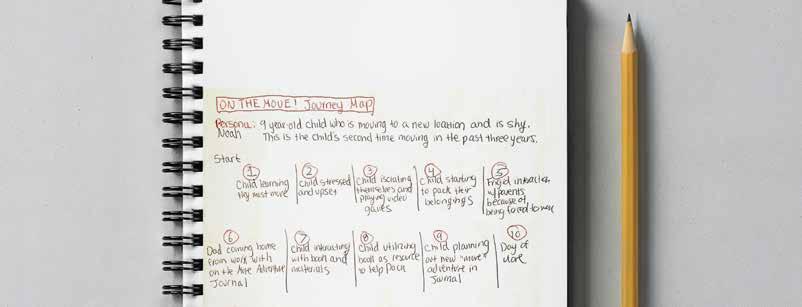 ON THE MOVE! Journey Map
Persona: 9 year-old child who is moving to a new location and is shy.
Noah This is the child's second time moving in the past three years.
Start
1
Child learning
they must move
2
Child stressed
and upset
3
Child isolating
themselves and
playing video
games
4
Child starting
to pack their
belongings
5
interaction
w/ parents
because of
being forced to move
6
Dad coming home
from work with
on the Move Adventure
Journal
7
Child interacting
with book and
materials
8
Child utilizing
book as resource
to help Pack
9
Child planning
out new "move"
adventure in
Journal
10
Day of
Move